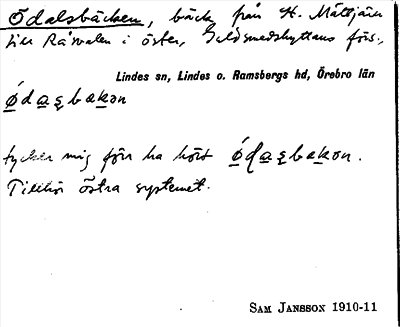 Ödalsbäcken, bäck från St. Måltjärn
till Råsvalen i öster, Guldsmedshyttans förs.,
Lindes sn, Lindes o. Ramsbergs hd, Örebro län
ǿdaʂbakən
tycker mig förr ha hört ǿɖaʂbakən.
Tillhör östra systemet.
SAM JANSSON 1910-11